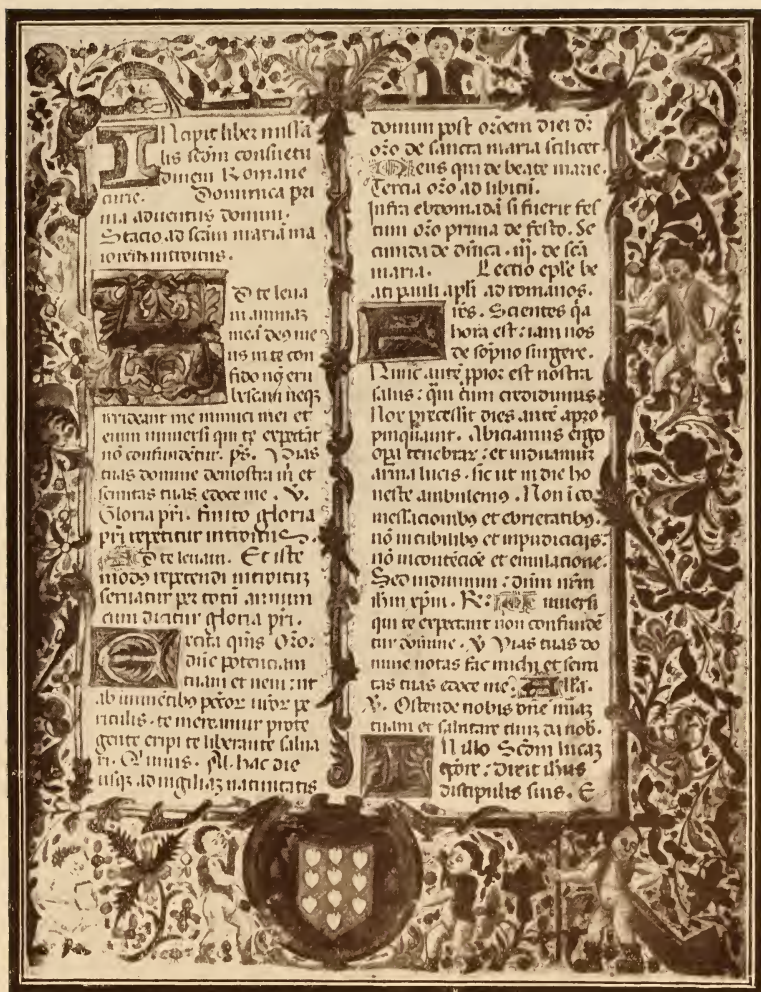 Incipit liber missa
lis scḋm consuetu
dinem Romane
curie. Dominica pri
ma aduentus domini.
Stacio ad scām mariā ma
iorem introitus.
D te leua
ui animaȝ
meā deꝯ me
us in te con
fido nō eru
bescam neqꝫ
irrideant me inimici mei et
enim uniuersi qui te expectāt
nō confundētur. ps. Vias
tuas domine demostra m̄ et
semitas tuas edoce me. V.
Gloria pr̄i. finito gloria
pr̄i repetitur introitus.
AD te leuaui. Et iste
modꝯ repetendi introituȝ
seruatur per totū annum
cum dicitur gloria pr̄i.
Excita quis Oro.
dn̄e potenciam
tuam et ueni: ut
ab
te mereamur prote
gente eripi te liberante salua
ri. Qui uiuis. Ab hac die
usqꝫ ad uigiliaȝ natiuitatis
domini post orōem diei dr̄
oro de sancta maria scilicet.
Deus qui de beate marie.
Tercia oro ad libitū.
Infra ebdomadā si fuerit fes
tum oro prima de festo. Se
cunda de dn̄ica. iij. de scā
maria. Lectio ep̄le be
ati pauli apl̄i ad romanos.
Fr̄es. Scientes q̄a
hora est: iam nos
de sop̄no surgere.
Nunc autē ꝓpior est nostra
salus: qui cum credidimus
Nox precessit dies autē apro
pinquauit. Abiciamus ergo
oꝑa tenebraꝝ: et induamur
arma lucis. sic ut in die ho
neste ambulemꝯ. Non ī co
messacionibꝯ et ebrietatibꝯ.
nō in cubilibꝯ et inpudiciciis:
nō in contēciōe et emulacione.
Sed induimini: dn̄m nr̄m
ihm xp̄m. R: Uniuersi
qui te expectant non confundē
tur domine. V Vias tuas do
mine notas fac michi et semi
tas tuas edoce me. Alla.
V. Ostende nobis dn̄e mīaȝ
tuam et salutare tuuȝ da nob.
In illo Scḋm lucaȝ
tp̄ore: Dixit ihus
discipulis suis. E